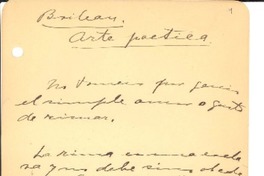 1
Boileau.
Arte poetica
No tomeis por genio
el simple amor o gusto
de rimar.
La rima es una escla
va y no debe sino obede